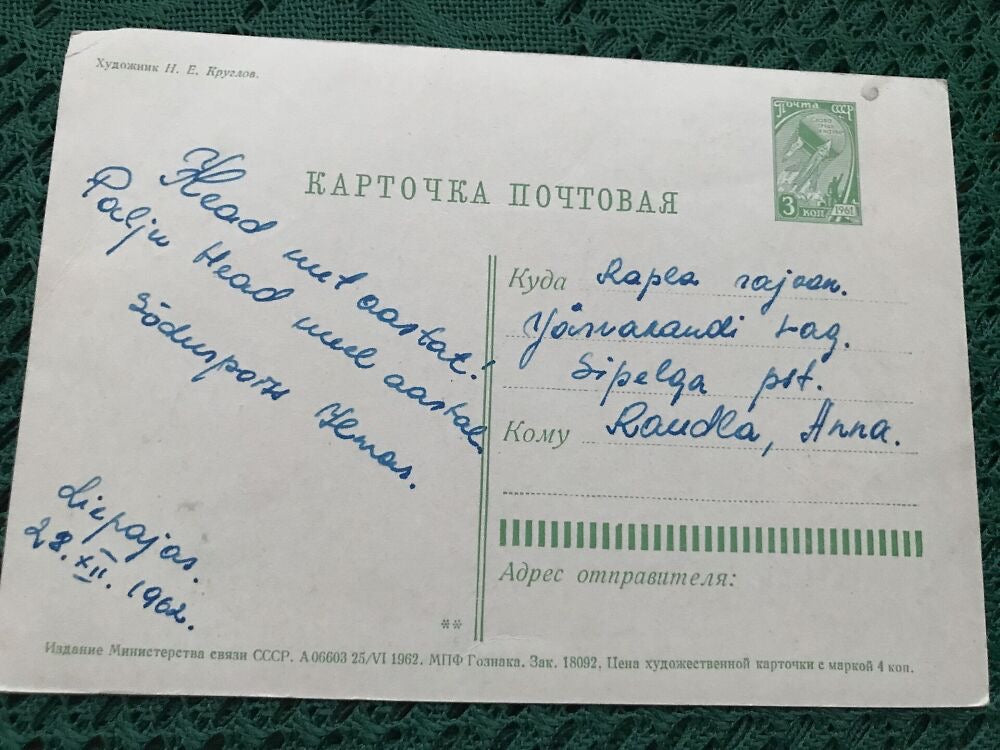 Художник Н. Е. Круглов.
Почта СССР
3 коп
1961
КАРТОЧКА ПОЧТОВАЯ
Head uut aastat!
Palju Head uuel aastal.
Sõduspoiss Ilmar.
Liepajas.
28.XII. 1962.
Куда Rapla rajoon.
Järvakandi t-ag.
Sipelga pst.
Кому Raudla, Anna.
Адрес отправителя:
**
Издание Министерства связи СССР. А 06603 25/VI 1962. МПФ Гознака. Зак. 18092. Цена художественной карточки с маркой 4 коп.